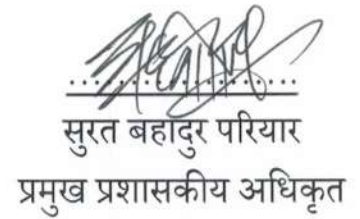 सुरत बहादुर परियार
प्रमुख प्रशासकीय अधिकृत